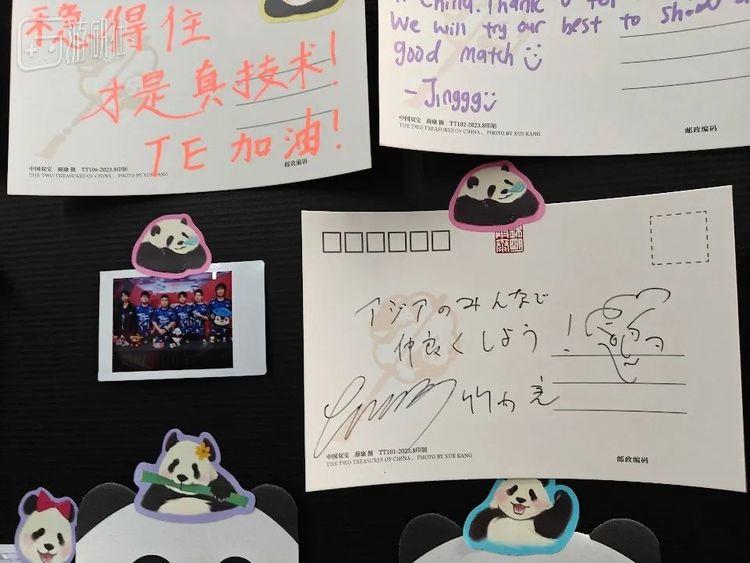 游研社
稳得住
才是真技术!
TE 加油!
中国双宝 薛康 摄 TT106-2023.8印制
THE TWO TREASURES OF CHINA, PHOTO BY XUE KANG
邮政编码
China. Thank u for
We will try our best to show
good match
- Jinggg
中国双宝 薛康 摄 TT102-2023.8印制
THE TWO TREASURES OF CHINA, PHOTO BY XUE KANG
邮政编码
アジアのみんなで
仲良くしよう!
中国双宝 薛康 摄 TT101-2023.8印制
THE TWO TREASURES OF CHINA, PHOTO BY XUE KANG
邮政编码